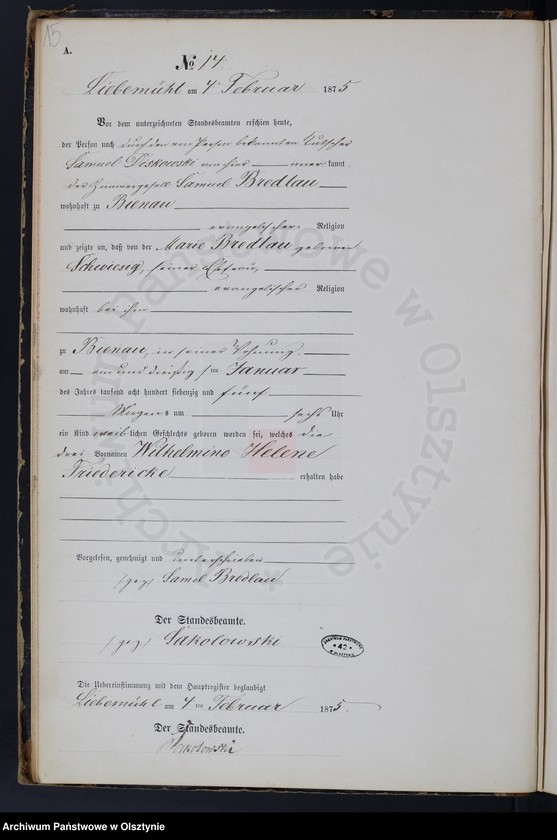 15
A.
№ 14
Liebemühl am 4ten Februar 1875
Vor dem unterzeichneten Standesbeamten erschien heute,
der Person nach durch den von Person bekannten Kutscher
Samuel von hier aner kannt
der Zimmergesell Samuel Bredlau
wohnhaft zu Bienau
evangelischer Religion
und zeigte an, daß von der Marie Bredlau geborene
Schwiesig, seiner Ehefrau,
evangelischer Religion
wohnhaft bei ihm
zu Bienau, in seiner Wohnung
am ein und dreißigsten Januar
des Jahres tausend acht hundert siebenzig und fünf
Morgens um sechs Uhr
ein Kind weiblichen Geschlechts geboren worden sei, welches die
drei Vornamen Wilhelmine Helene
Friedericke erhalten habe
Vorgelesen, genehmigt und unterschrieben
(gez) Samel Bredlau
Der Standesbeamte.
(gez) Sakolowski
ARCHIWUM PAŃSTWOWE
* 42 *
W OLSZTYNIE
Die Uebereinstimmung mit dem Hauptregister beglaubigt
Liebemühl am 4ten Februar 1875.
Der Standesbeamte.
Sakolowski
Archiwum Państwowe w Olsztynie
Archiwum Państwowe w Olsztynie